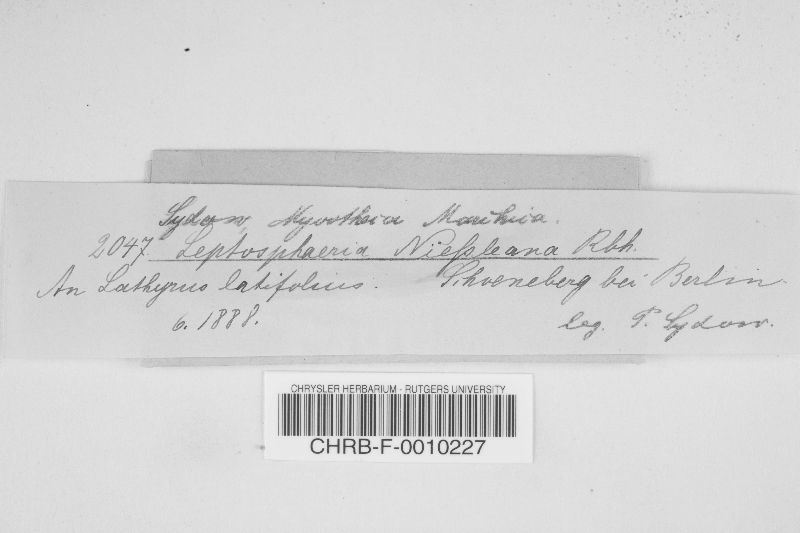 Sydow, Mycotheca Marchica.
2047. Leptosphaeria Nießleana Rbh.
An Lathyrus latifolius. Schoeneberg bei Berlin.
6. 1888. leg. P. Sydow.
CHRYSLER HERBARIUM - RUTGERS UNIVERSITY
CHRB-F-0010227